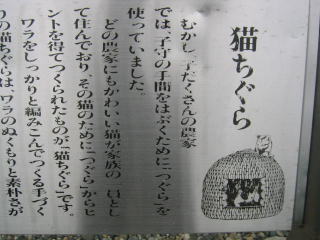 猫ちぐら
むかし、子だくさんの農家
では、子守の手間をはぶくために「つぐら」を
使っていました。
どの農家にもかわいい猫が家族の一員とし
て住んでおり、その猫のために「つぐら」からヒ
ントを得てつくられたものが「猫ちぐら」です。
ワラをしっかりと編みこんでつくる手づく
りの猫ちぐらは、ワラのぬくもりと素朴さが